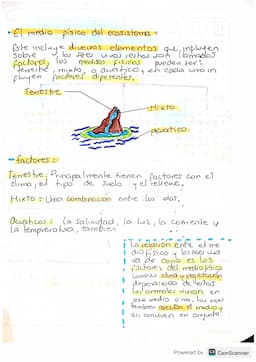 - El medio físico del ecosistema:
Este incluye diversos elementos que influyen
sobre los seres vivos estos son llamados
factores, los medios físicos pueden ser:
terrestre, mixto, o acuático, en cada uno in
fluyen factores diferentes.
Terrestre
Mixto
acuático
- factores:
Terrestre: Principalmente tienen factores con el
clima, el tipo de suelo y el relieve.
Mixto: Una combinación entre los dos.
Acuático: La salinidad, la luz, la corriente y
la temperatura, también
La relación entre el me
dio físico y los seres vi
vos
factores del medio físico
como: clima y vegetación
dependiendo de estos
los animales viven en
ese medio o no. Los seres
también afectan el medio
así conviven en conjunto.
Powered by CS CamScanner